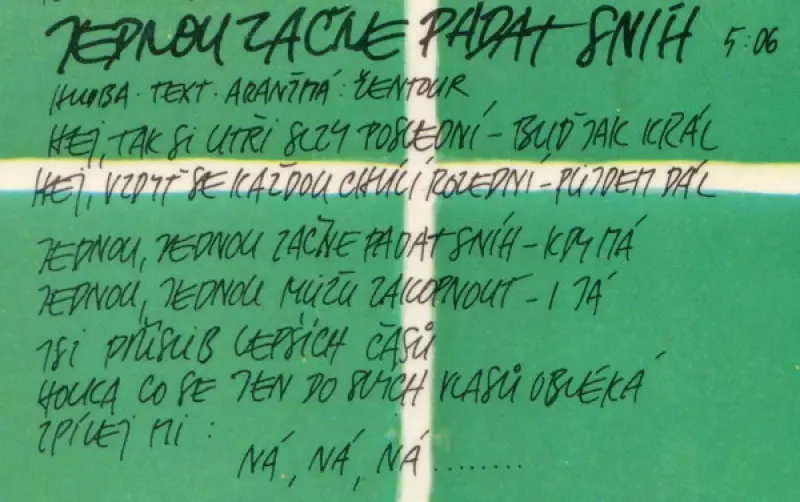 JEDNOU ZAČNE PADAT SNÍH 5:06
HUDBA · TEXT · ARANŽMÁ: ŽENTOUR
HEJ, TAK SI UTŘI SLZY POSLEDNÍ – BUĎ JAK KRÁL
HEJ, VŽDYŤ SE KAŽDOU CHVÍLÍ ROZEDNÍ – PŮJDEM DÁL
JEDNOU, JEDNOU ZAČNE PADAT SNÍH – KDY MÁ
JEDNOU, JEDNOU MŮŽU ZAKOPNOUT – I JÁ
JSI PŘÍSLIB LEPŠÍCH ČASŮ
HOLKA CO SE JEN DO SVÝCH VLASŮ OBLÉKÁ
ZPÍVEJ MI :
NÁ, NÁ, NÁ ........